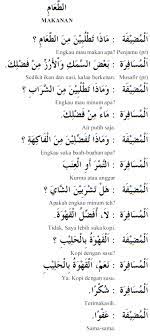 الطَّعَامُ
MAKANAN
الْمُضِيْفَة : مَاذَا تَطْلُبِيْنَ مِنَ الطَّعَامِ ؟
Engkau mau makan apa? Penjamu (pr)
الْمُسَافِرَة : بَعْضَ السَّمَكِ وَالْأَرُزَّ مِنْ فَضْلِكِ.
Sedikit ikan dan nasi, kalau berkenan. Musafir (pr)
الْمُضِيْفَة : وَمَاذَا تَطْلُبِيْنَ مِنَ الشَّرَابِ ؟
Engkau mau minum apa?
الْمُسَافِرَة :
Air putih saja.
الْمُضِيْفَة : وَمَاذَا تُفَضِّلِيْنَ مِنَ الْفَاكِهَةِ ؟
Engkau suka buah-buahan apa?
الْمُسَافِرَة : التَّمْرَ أَوِ الْعِنَبَ
Kurma atau anggur
الْمُضِيْفَة : هَلْ تَشْرَبِيْنَ الشَّايَ ؟
Apakah engkau minum teh?
الْمُسَافِرَة : لاَ، أُفَضِّلُ الْقَهْوَةَ.
Tidak, Saya lebih suka kopi.
الْمُضِيْفَة : الْقَهْوَةُ بِالْحَلِيْبِ ؟
Kopi dengan susu?
الْمُسَافِرَة : نَعَمْ، الْقَهْوَةُ بِالْحَلِيْبِ.
Ya. Kopi dengan susu.
الْمُضِيْفَة : شُكْرًا.
Terimakasih.
الْمُسَافِرَة : عَفْوًا.
Sama-sama.